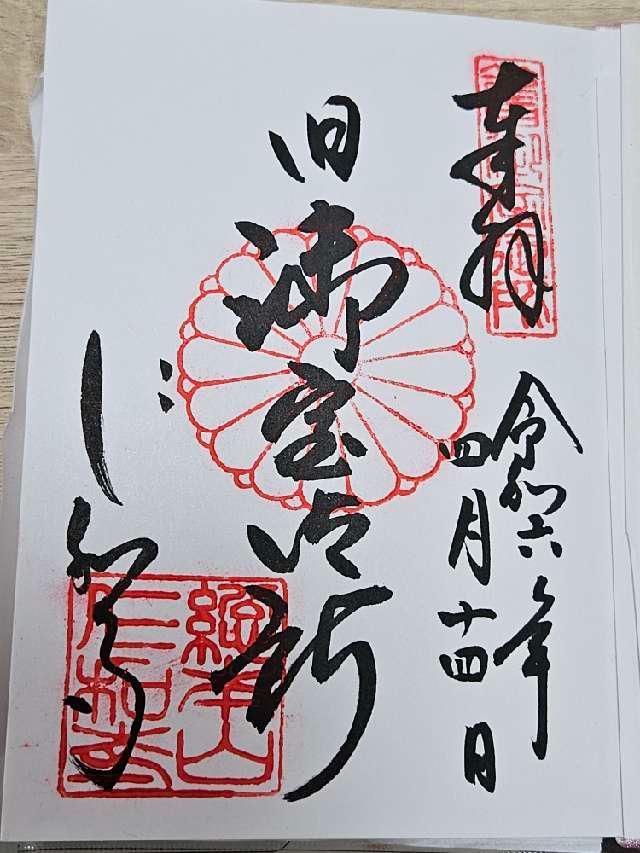 奉拝
令和六年
四月十四日
旧御室御所
仁和寺
総本山
仁和寺